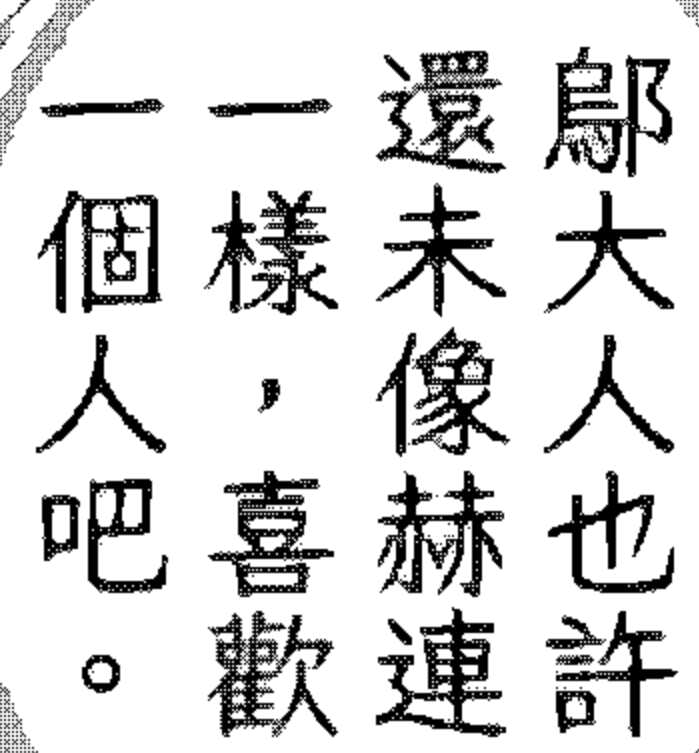 鄔大人也許
還未像赫連
一樣，喜歡
一個人吧。